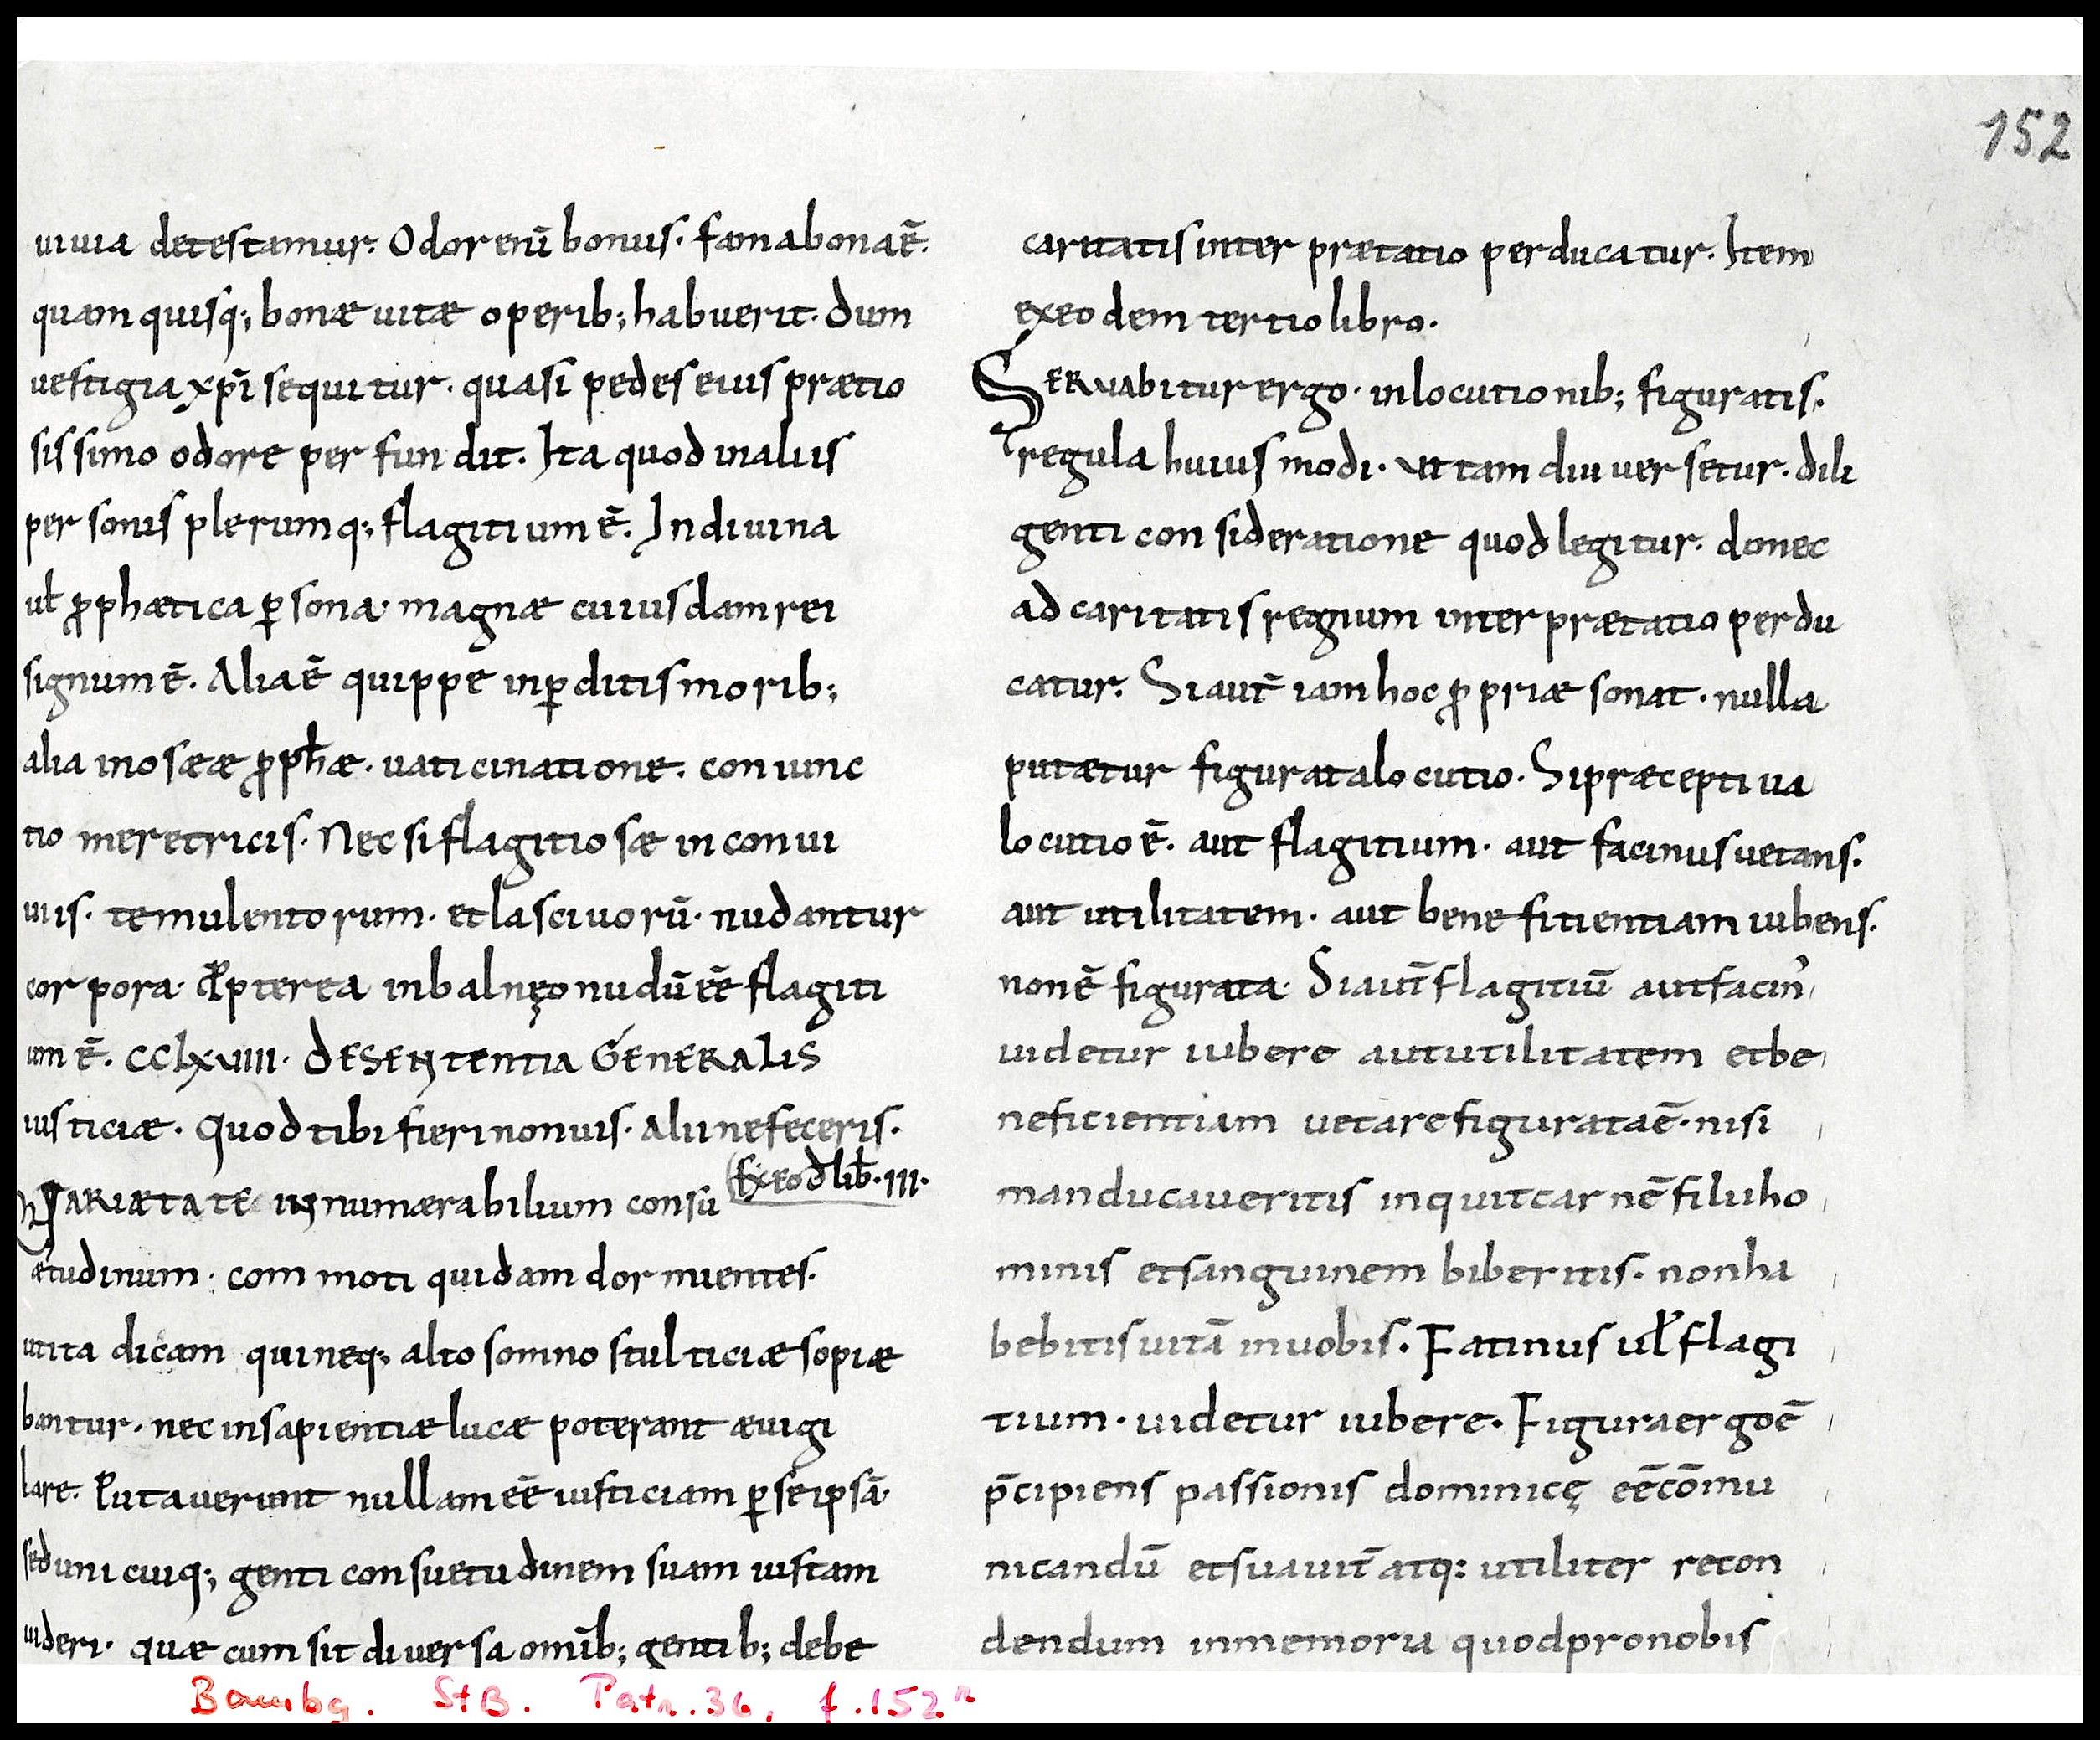 152
uiuia detestamur. Odor enū bonus. fama bona ē.
quam quisq; bonæ uitæ operib; habuerit. dum
uestigia xp̄i sequitur. quasi pedes eius prætio
sissimo odore perfundit. Ita quod in aliis
personis plerumq; flagitium ē. In diuina
ul̄ ꝓphætica ꝑsona. magnæ cuiusdam rei
signum ē. Alia ē quippe in ꝑditis morib;
alia in osææ ꝓph̄æ. uaticinatione. coniunc
tio meretricis. Nec si flagitiosæ in conui
uiis. temulentorum. et lasciuorū. nudantur
corpora. ꝓpterea in balnęo nudū ēē flagiti
um ē. CClxuiiii. DE SENTENTIA GENERALIS
iusticiæ. Quod tibi fieri non uis. alii ne feceris.
Ex eod̄ lib̄. III.
VARIÆTATE INnumærabilium consu
ætudinum. commoti quidam dormientes.
ut ita dicam qui neq; alto somno stulticiæ sopiæ
bantur. nec in sapientiæ lucæ poterant æuigi
lare. Putauerunt nullam ēē iusticiam ꝑ se ipsā.
sed uni cuiq; genti consuetudinem suam iustam
uideri. quæ cum sit diuersa omīb; gentib; debe
caritatis interprætatio perducatur. Item
ex eodem tertio libro.
SERVAbitur ergo. in locutionib; figuratis.
regula huius modi. ut tam diu uersetur. dili
genti consideratione quod legitur. donec
ad caritatis regnum interprætatio perdu
catur. Si aut̄ iam hoc ꝓpriæ sonat. nulla
putætur figurata locutio. Si præceptiua
locutio ē. aut flagitium. aut facinus uetans.
aut utilitatem. aut benefitientiam iubens.
non ē figurata. Si aut̄ flagitiū aut facin᾿
uidetur iubere aut utilitatem et be
neficientiam uetare figurata ē. nisi
manducaueritis inquit carnē filii ho
minis et sanguinem biberitis. non ha
bebitis uitā in uobis. Fatinus ul̄ flagi
tium. uidetur iubere. Figura ergo ē
p̄cipiens passionis dominicę ēē cōmu
nicandū et suauit̄ atq: utiliter recon
dendum in memoria quod pro nobis
Bambg. StB. Patr. 36, f. 152r